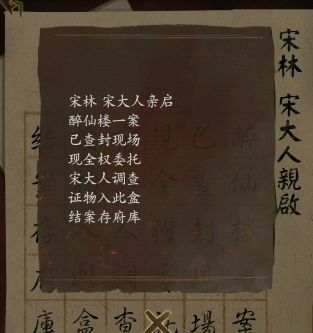 宋林 宋大人親啟
宋林 宋大人亲启
醉仙楼一案
已查封现场
现全权委托
宋大人调查
证物入此盒
结案存府库
醉仙案
已封現場
現全權
查
盒
結存府庫